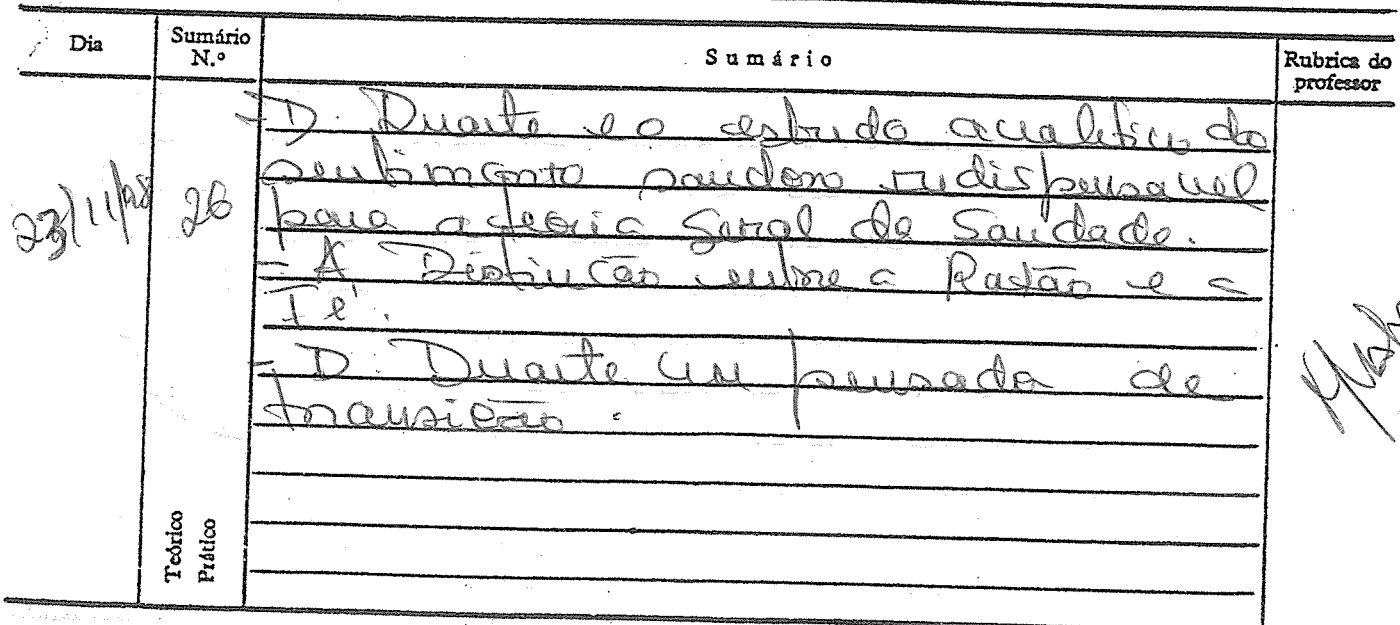 Dia
Sumário N.º
Sumário
Rubrica do professor
23/11/98
26
- D. Duarte e o estudo analítico do
sentimento saudoso indispensavel
para a teoria geral da Saudade.
- A Distinção entre a Razão e a
Fé.
- D. Duarte um pensador de
transição.
Teórico
Prático